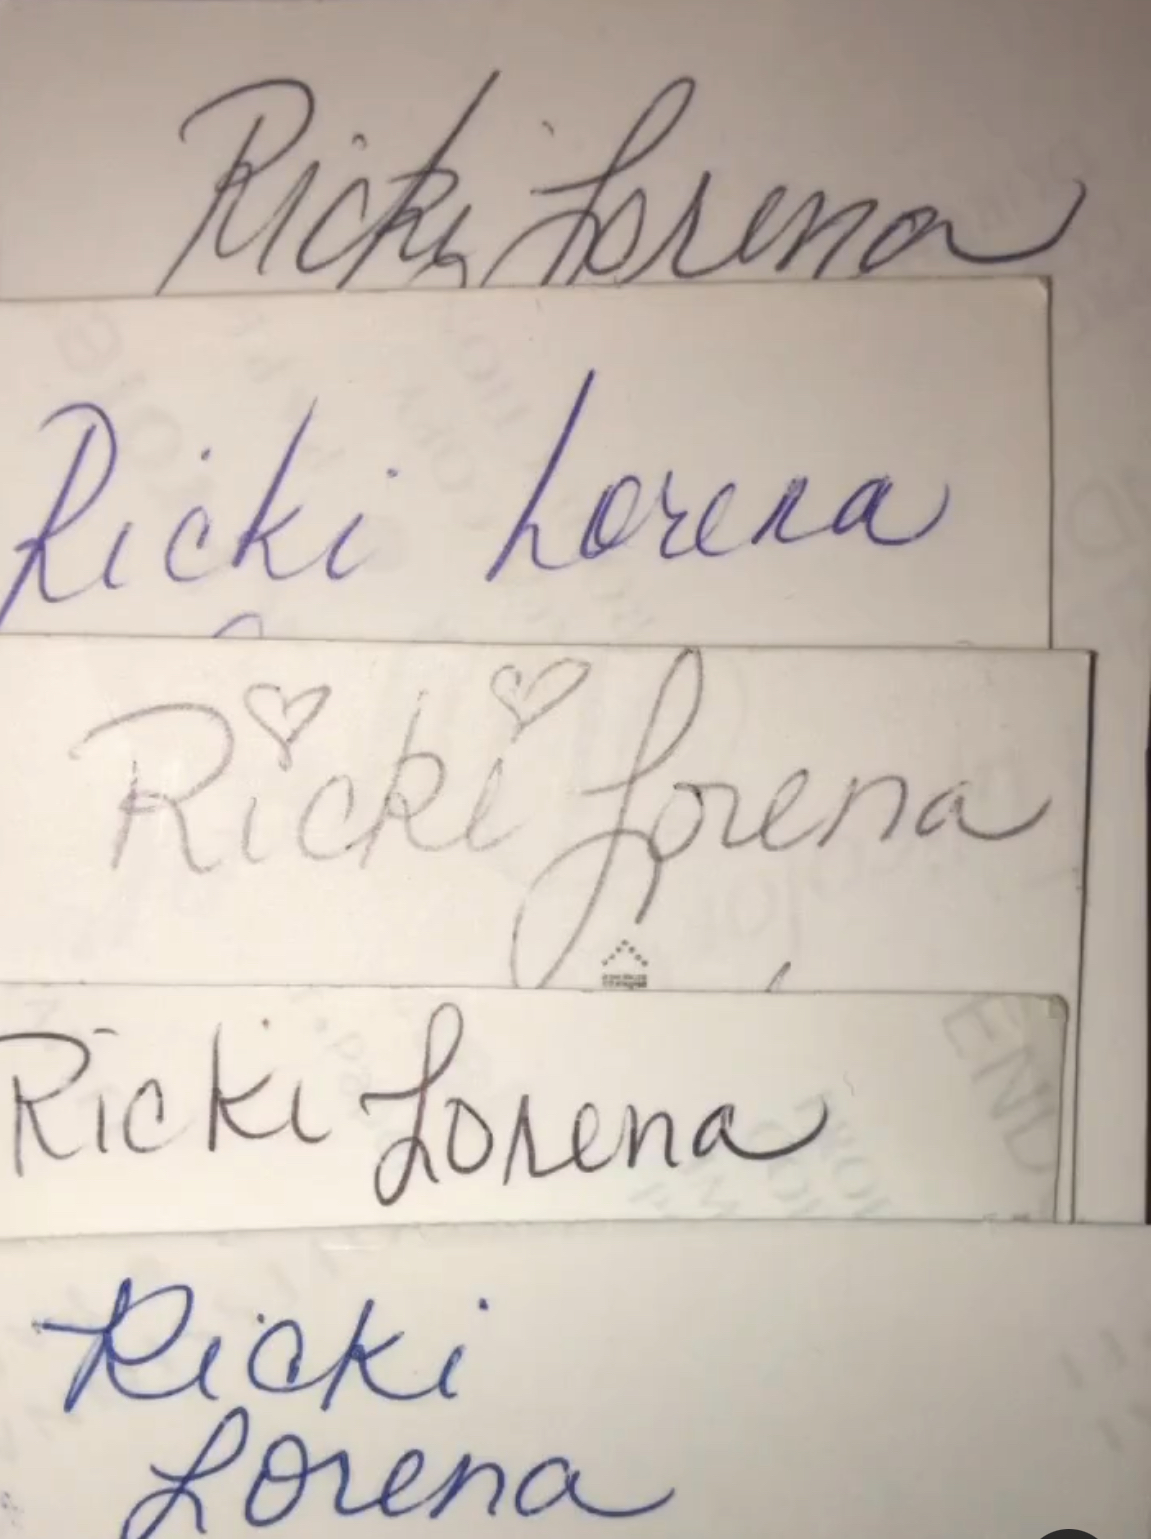 Ricki Lorena
Ricki Lorena
Ricki Lorena
Ricki Lorena
Ricki
Lorena